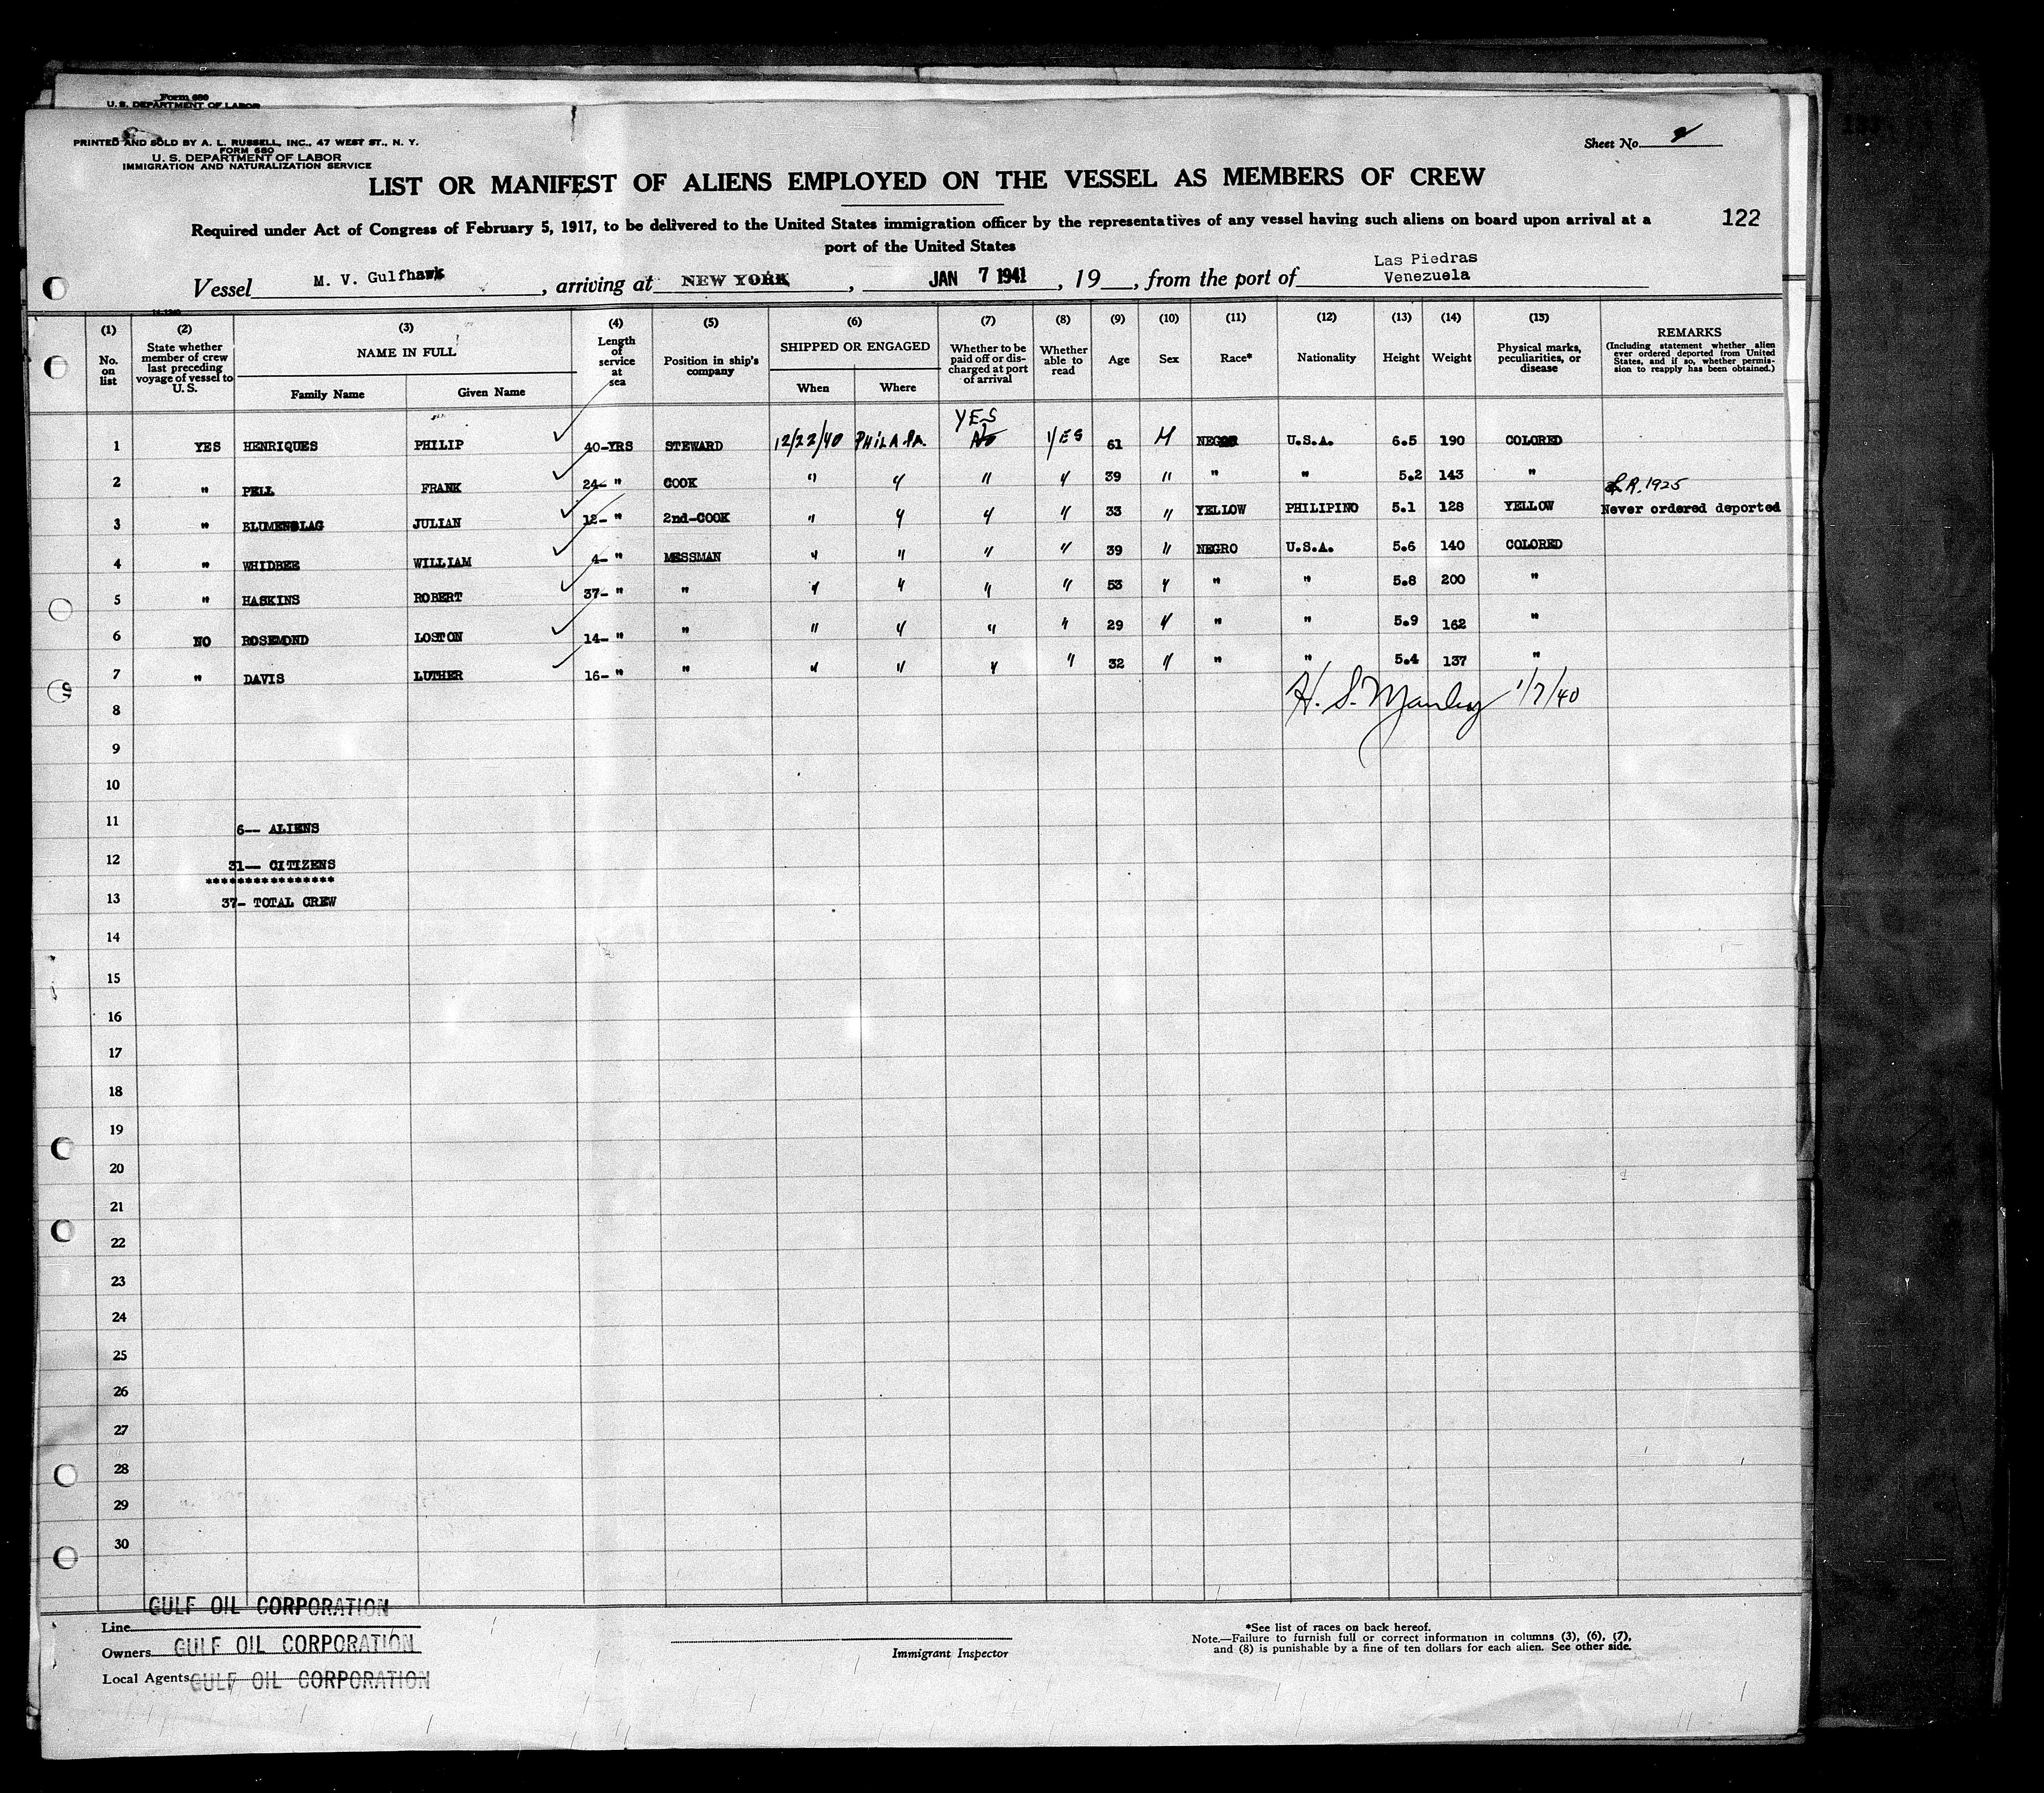 Form 680
U. S. DEPARTMENT OF LABOR
PRINTED AND SOLD BY A. L. RUSSELL, INC., 47 WEST ST., N. Y.
FORM 680
U. S. DEPARTMENT OF LABOR
IMMIGRATION AND NATURALIZATION SERVICE
Sheet No.
LIST OR MANIFEST OF ALIENS EMPLOYED ON THE VESSEL AS MEMBERS OF CREW
Required under Act of Congress of February 5, 1917, to be delivered to the United States immigration officer by the representatives of any vessel having such aliens on board upon arrival at a
port of the United States
122
Vessel M. V. Gulfhawk, arriving at NEW YORK, JAN 7 1941, 19__, from the port of Las Piedras Venezuela
(1) No. on list
(2) State whether member of crew last preceding voyage of vessel to U. S.
(3) NAME IN FULL Family Name Given Name
(4) Length of service at sea
(5) Position in ship's company
(6) SHIPPED OR ENGAGED When Where
(7) Whether to be paid off or discharged at port of arrival
(8) Whether able to read
(9) Age
(10) Sex
(11) Race*
(12) Nationality
(13) Height
(14) Weight
(15) Physical marks, peculiarities, or disease
REMARKS (Including statement whether alien ever ordered deported from United States, and if so, whether permission to reapply has been obtained.)
YES
1 YES HENRIQUES PHILIP 40-YRS STEWARD 12/22/40 PHILA. PA. No YES 61 M NEGRO U.S.A. 6.5 190 COLORED
2 " PELL FRANK 24- " COOK " " " " 39 " " " 5.2 143 "
L.R. 1925
3 " BLUMENSLAG JULIAN 12- " 2nd-COOK " " " " 33 " YELLOW PHILIPINO 5.1 128 YELLOW Never ordered deported
4 " WHIDBEE WILLIAM 4- " MESSMAN " " " " 39 " NEGRO U.S.A. 5.6 140 COLORED
5 " HASKINS ROBERT 37- " " " " " " 53 " " " 5.8 200 "
6 NO ROSEMOND LOSTON 14- " " " " " " 29 " " " 5.9 162 "
7 " DAVIS LUTHER 16- " " " " " " 32 " " " 5.4 137 "
8 H. S. Manley 1/7/40
9
10
11 6-- ALIENS
12 31-- CITIZENS
****************
13 37- TOTAL CREW
14
15
16
17
18
19
20
21
22
23
24
25
26
27
28
29
30
Line GULF OIL CORPORATION
Owners GULF OIL CORPORATION
Local Agents GULF OIL CORPORATION
Immigrant Inspector
*See list of races on back hereof.
Note.—Failure to furnish full or correct information in columns (3), (6), (7),
and (8) is punishable by a fine of ten dollars for each alien. See other side.